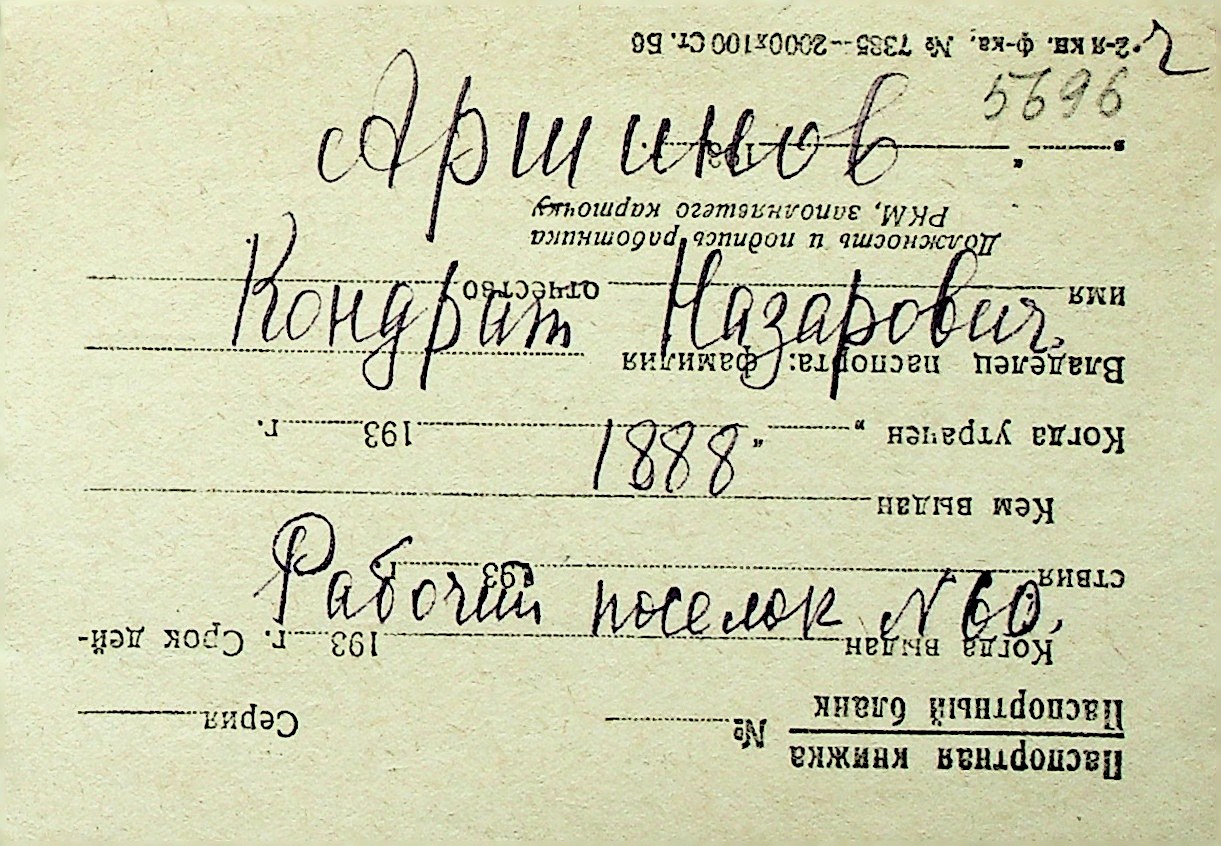 ч
5696
Аршинов
Кондрат Назарович.
1888
Рабочий поселок N 60.
Паспортная книжка
Паспортный бланк
№ Серия
Когда выдан 193 г. Срок дей-
ствия 193 г.
Кем выдан
Когда утрачен „ “ 193 г.
Владелец паспорта: фамилия
имя отчество
Должность и подпись работника
РКМ, заполнявшего карточку
„ “ 193 г.
2-я кн. ф-ка, № 7385--2000х100 Ст. Б6